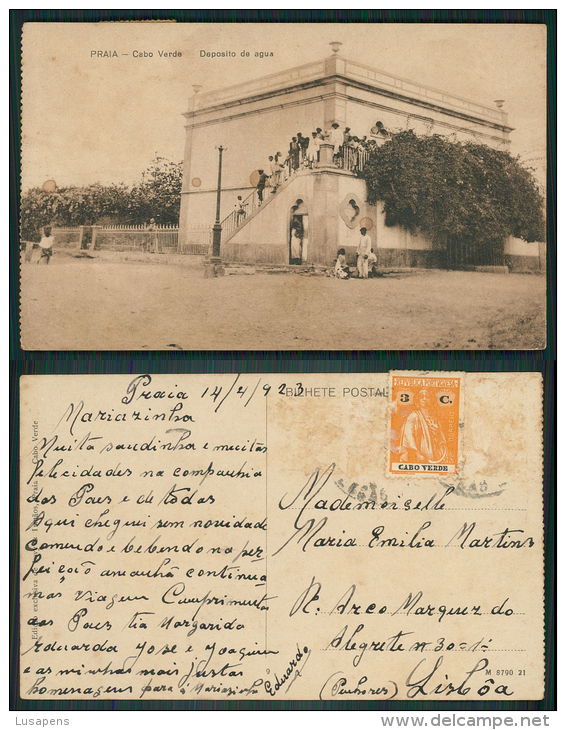 PRAIA – Cabo Verde Deposito de agua
Praia 14/4/923
BILHETE POSTAL
Mariazinha
Muita saudinha e muitas
felicidades na companhia
dos Paes e de todos
Aqui cheguei sem novidade
comendo e bebendo na per-
feição amanhã continua-
mos Viagem Cumprimentos
aos Paes tia Margarida
Eduarda José e Joaquim
e as minhas mais justas
homenagens para á Mariazinha
Eduardo
REPUBLICA PORTUGUESA
3 C.
CORREIO
CABO VERDE
Mademoiselle
Maria Emilia Martins
R. Arco Marquez do
Alegrete nº 30-1º
(Penhores) Lisbôa
9
M 8790 21
Cabo Verde
Lusapens
www.delcampe.net